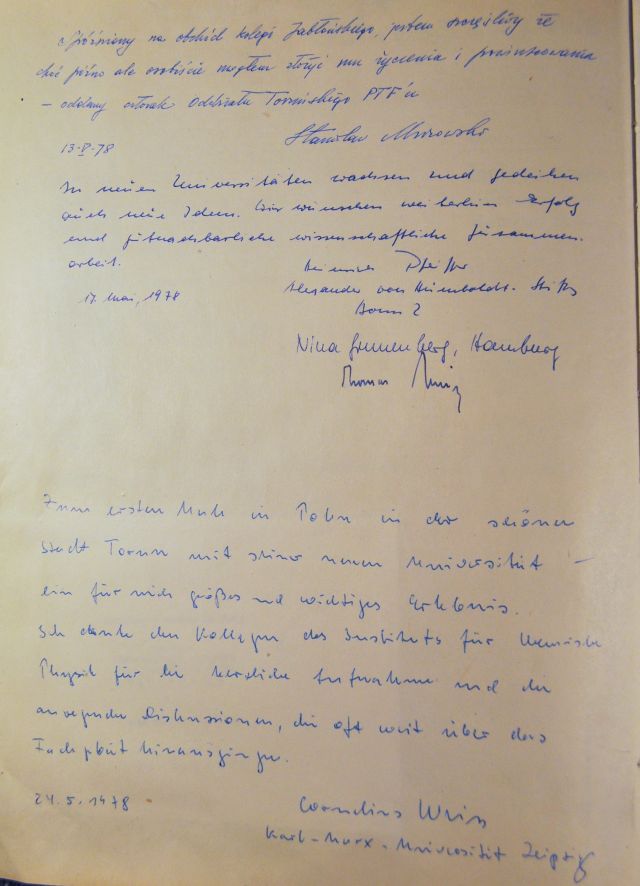 spóźniony na obchód kolegi Jabłońskiego, jestem szczęśliwy że
choć późno ale osobiście mogłem złożyć mu życzenia i powinszowania
– oddany członek Oddziału Toruńskiego PTF'u
Stanisław Mrozowski
13-V-78
In neuen Universitäten wachsen und gedeihen
auch neue Ideen. Wir wünschen weiterhin Erfolg
und fruchtbare wissenschaftliche Zusammen-
arbeit.
Heinrich Pfeiffer
17. Mai, 1978
Alexander von Humboldt-Stiftg
Bonn 2
Nina Grunenberg, Hamburg
Thomas
Zum ersten Male in Polen in der schönen
Stadt Torun mit seiner neuen Universität –
ein für mich großes und wichtiges Erlebnis.
Ich danke den Kollegen des Instituts für
Physik für die herzliche Aufnahme und die
anregenden Diskussionen, die oft weit über das
Fachgebiet hinausgingen.
24.5.1978
Cornelius Weiss
Karl-Marx-Universität Leipzig